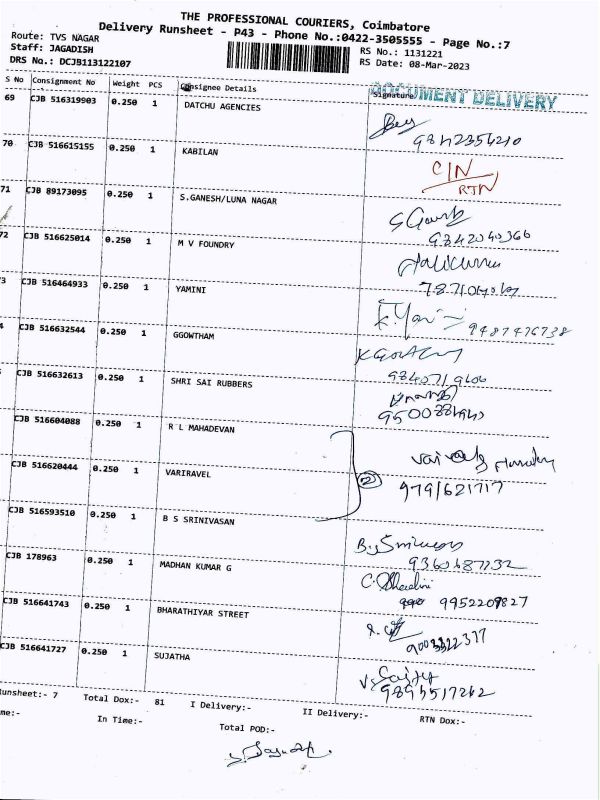 THE PROFESSIONAL COURIERS, Coimbatore
Delivery Runsheet - P43 - Phone No.:0422-3505555 - Page No.:7
Route: TVS NAGAR
Staff: JAGADISH
DRS No.: DCJB113122107
RS No.: 1131221
RS Date: 08-Mar-2023
S No Consignment No Weight PCS Consignee Details Signature
DOCUMENT DELIVERY
69 CJB 516319903 0.250 1 DATCHU AGENCIES
70 CJB 516615155 0.250 1 KABILAN C/N
RTN
71 CJB 89173095 0.250 1 S.GANESH/LUNA NAGAR
9842040366
72 CJB 516625014 0.250 1 M V FOUNDRY
3 CJB 516464933 0.250 1 YAMINI
9487476738
4 CJB 516632544 0.250 1 GGOWTHAM
CJB 516632613 0.250 1 SHRI SAI RUBBERS
CJB 516604088 0.250 1 R L MAHADEVAN
CJB 516620444 0.250 1 VARIRAVEL
2
9791621717
CJB 516593510 0.250 1 B S SRINIVASAN
9360687232
CJB 178963 0.250 1 MADHAN KUMAR G
9952209827
CJB 516641743 0.250 1 BHARATHIYAR STREET
CJB 516641727 0.250 1 SUJATHA
unsheet:- 7 Total Dox:- 81 I Delivery:- II Delivery:- RTN Dox:-
me:- In Time:- Total POD:-